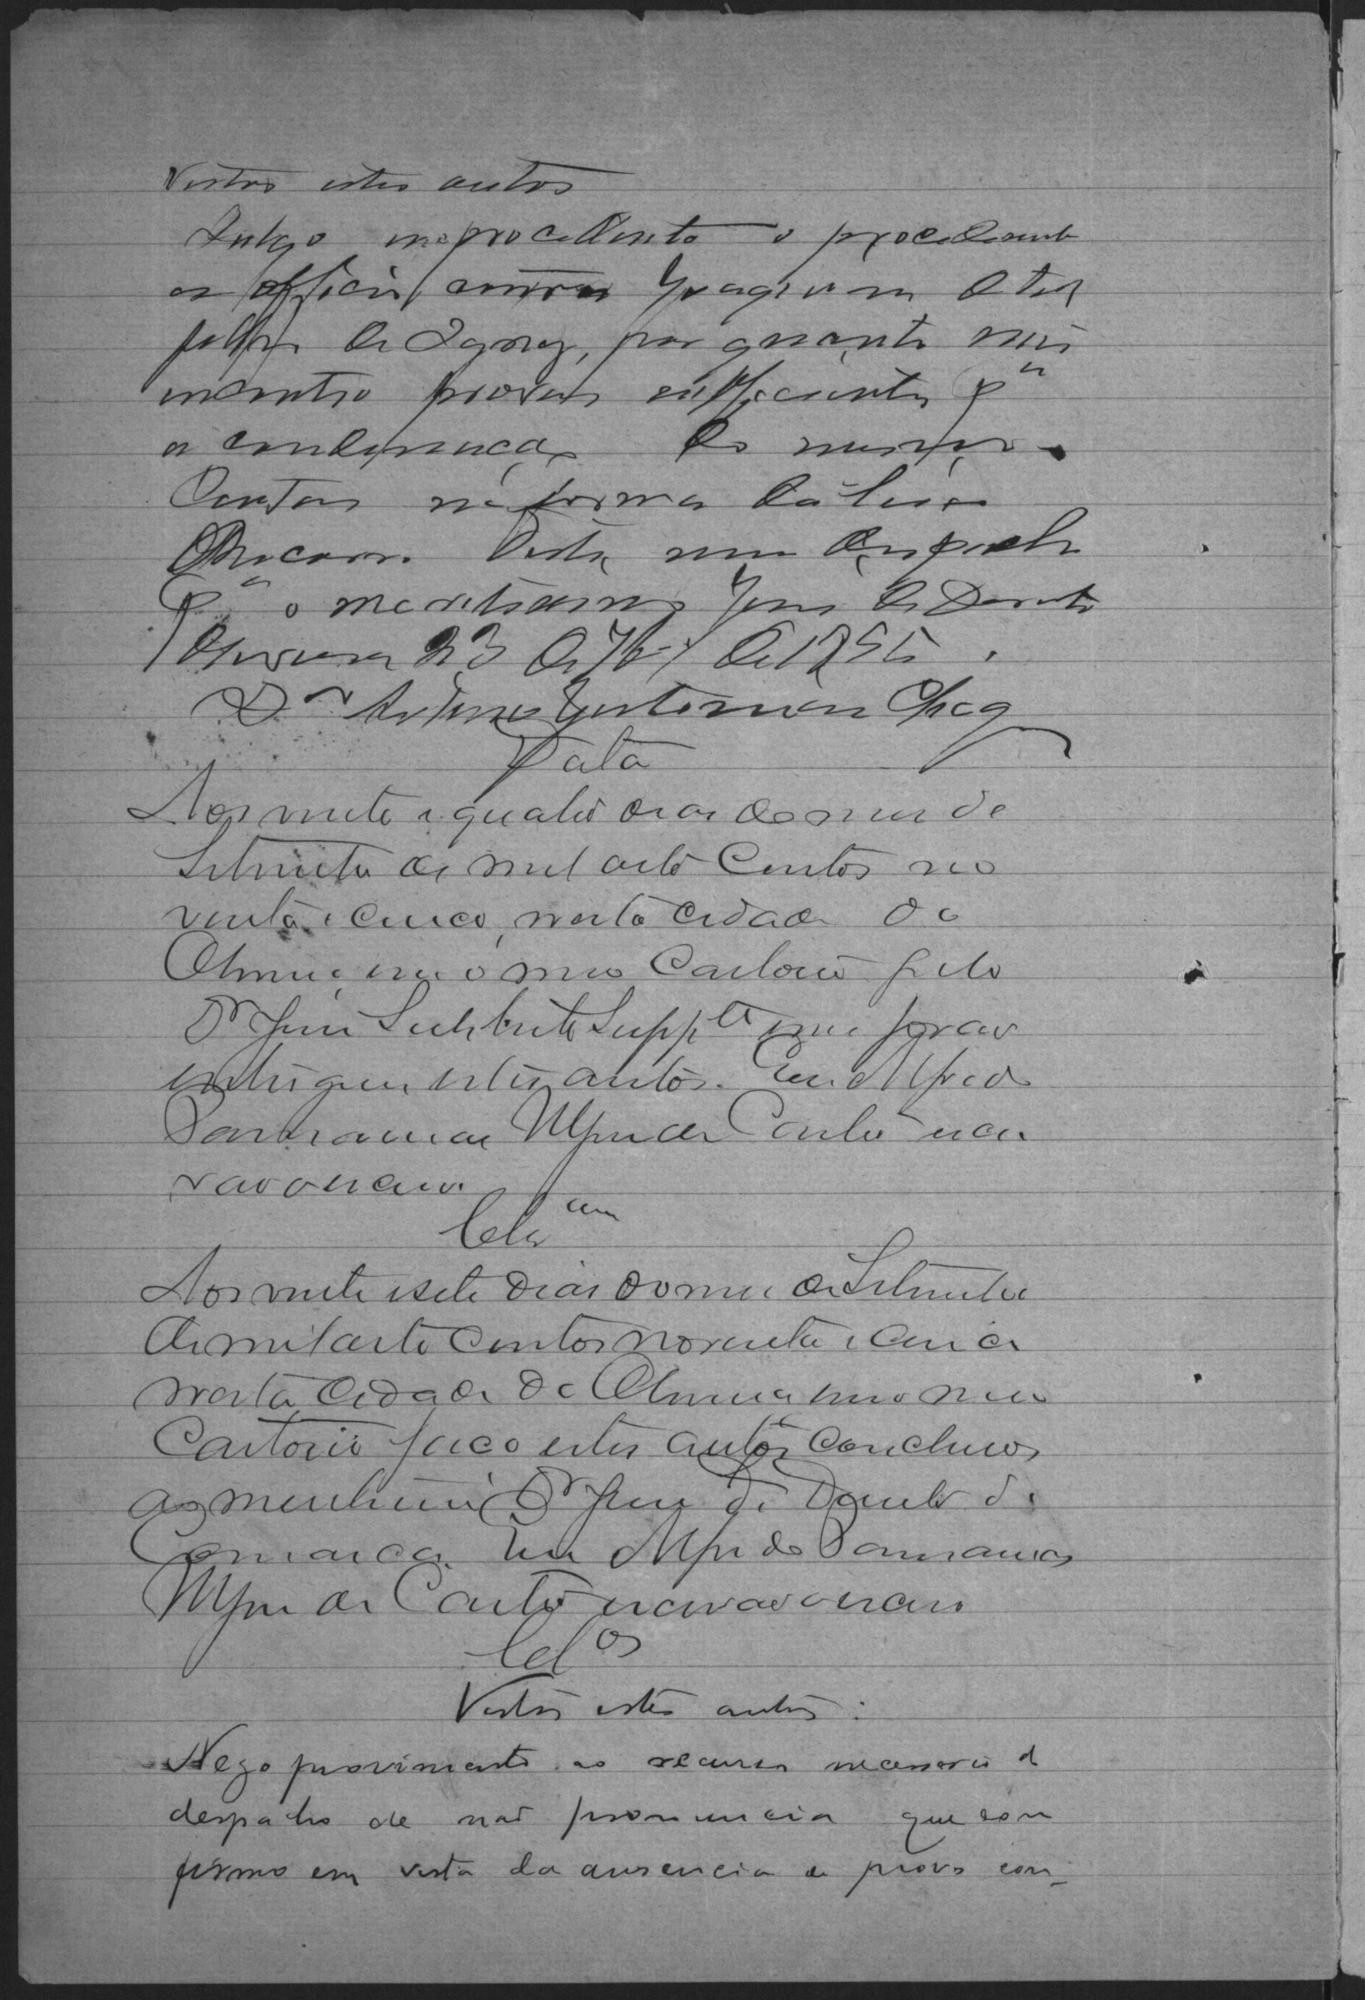 Vistos estes autos
Julgo improcedente o procedimento
ex officio contra Joaquim de tal
filho de Ignez, por quanto não
encontro provas sufficientes pª
a condemnação do mesmo.
Custas na forma da lei.
Recorro deste meu despacho
pª o meritissimo Juiz de Direito
23 de 7br de 1895.
Dr
Data
Aos vinte e quatro dias do mes de
Setembro de mil oito centos no
venta e cinco, nesta cidade de
em o meu Cartorio pelo
Dr Juiz Substituto Suppte me forão
entregues estes autos. Eu Alfredo
escri
vão o escrevi.
Clsam
Aos vinte e sete dias do mes de Setembro
de mil oito centos noventa e cinco
nesta cidade de em o meu
Cartorio faço estes autos conclusos
ao meritissimo Dr Juiz de Direito da
Comarca. Eu Alfredo
escrivão o escrevi
Clos
Vistos estes autos:
Nego provimento ao recurso necessario do
despacho de não pronuncia que con
firmo em vista da ausencia de prova con_